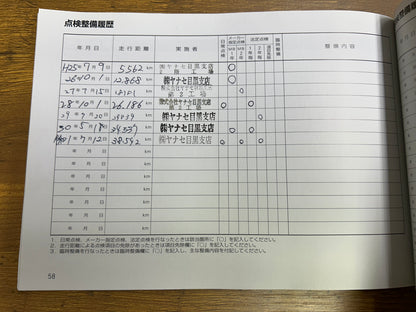 点検整備履歴
年月日 走行距離 実施者 日常点検 メーカー指定点検 法定点検 臨時整備 整備内容
H25年7月9日 5,562 km ㈱ヤナセ目黒支店 ○
26年10月1日 12,868 km ㈱ヤナセ目黒支店 ○
27年7月15日 km 株式会社ヤナセ目黒支店 第2工場 ○
28年10月1日 26,186 km 株式会社ヤナセ目黒支店 第2工場 ○ ○
29年9月20日 km ㈱ヤナセ目黒支店 ○
30年5月18日 34,637 km ㈱ヤナセ目黒支店 ○ ○
年7月12日 38,592 km ㈱ヤナセ目黒支店 ○
年 月 日 km
年 月 日 km
年 月 日 km
年 月 日 km
年 月 日 km
年 月 日 km
年 月 日 km
1. 日常点検、メーカー指定点検、法定点検を行なったときは該当箇所に「○」を記入してください。
2. 走行距離による点検項目の免除があったときは項目免除欄に「○」を記入してください。
3. 臨時整備を行なったときは臨時整備欄に「○」を記入し、主な整備内容を付記してください。
58